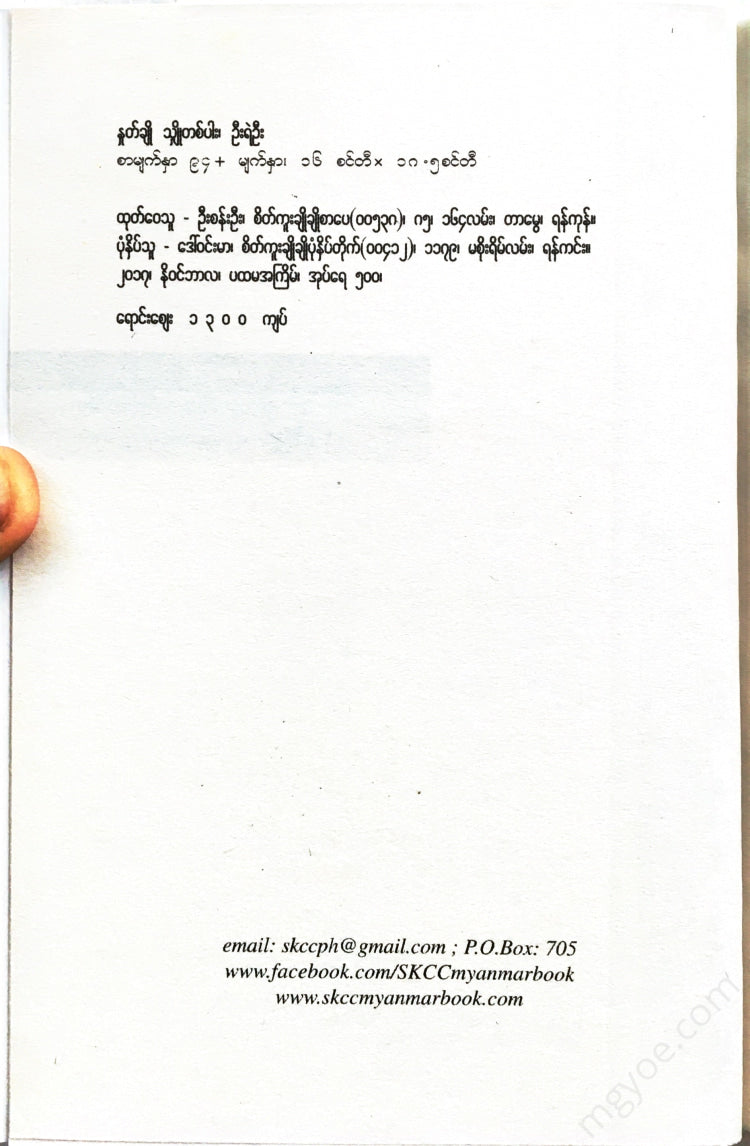 နှုတ်ချို သျှိုတစ်ပါး၊ ဦးရဲဦး
စာမျက်နှာ ၉၄+ မျက်နှာ၊ ၁၆ စင်တီ× ၁ဂ.၅စင်တီ
ထုတ်ဝေသူ - ဦးစန်းဦး၊ စိတ်ကူးချိုချိုစာပေ(၀၀၅၃ဂ)၊ ဂ၅၊ ၁၆၄လမ်း၊ တာမွေ၊ ရန်ကုန်။
ပုံနှိပ်သူ - ဒေါ်ဝင်းမာ၊ စိတ်ကူးချိုချိုပုံနှိပ်တိုက်(၀၀၄၁၂)၊ ၁၁၇၉၊ မစိုးရိမ်လမ်း၊ ရန်ကင်း။
၂၀၁၇၊ နိုဝင်ဘာလ၊ ပထမအကြိမ်၊ အုပ်ရေ ၅၀၀၊
ရောင်းဈေး ၁ ၃ ၀ ၀ ကျပ်
email: skccph@gmail.com ; P.O.Box: 705
www.facebook.com/SKCCmyanmarbook
www.skccmyanmarbook.com
mgyoe.com